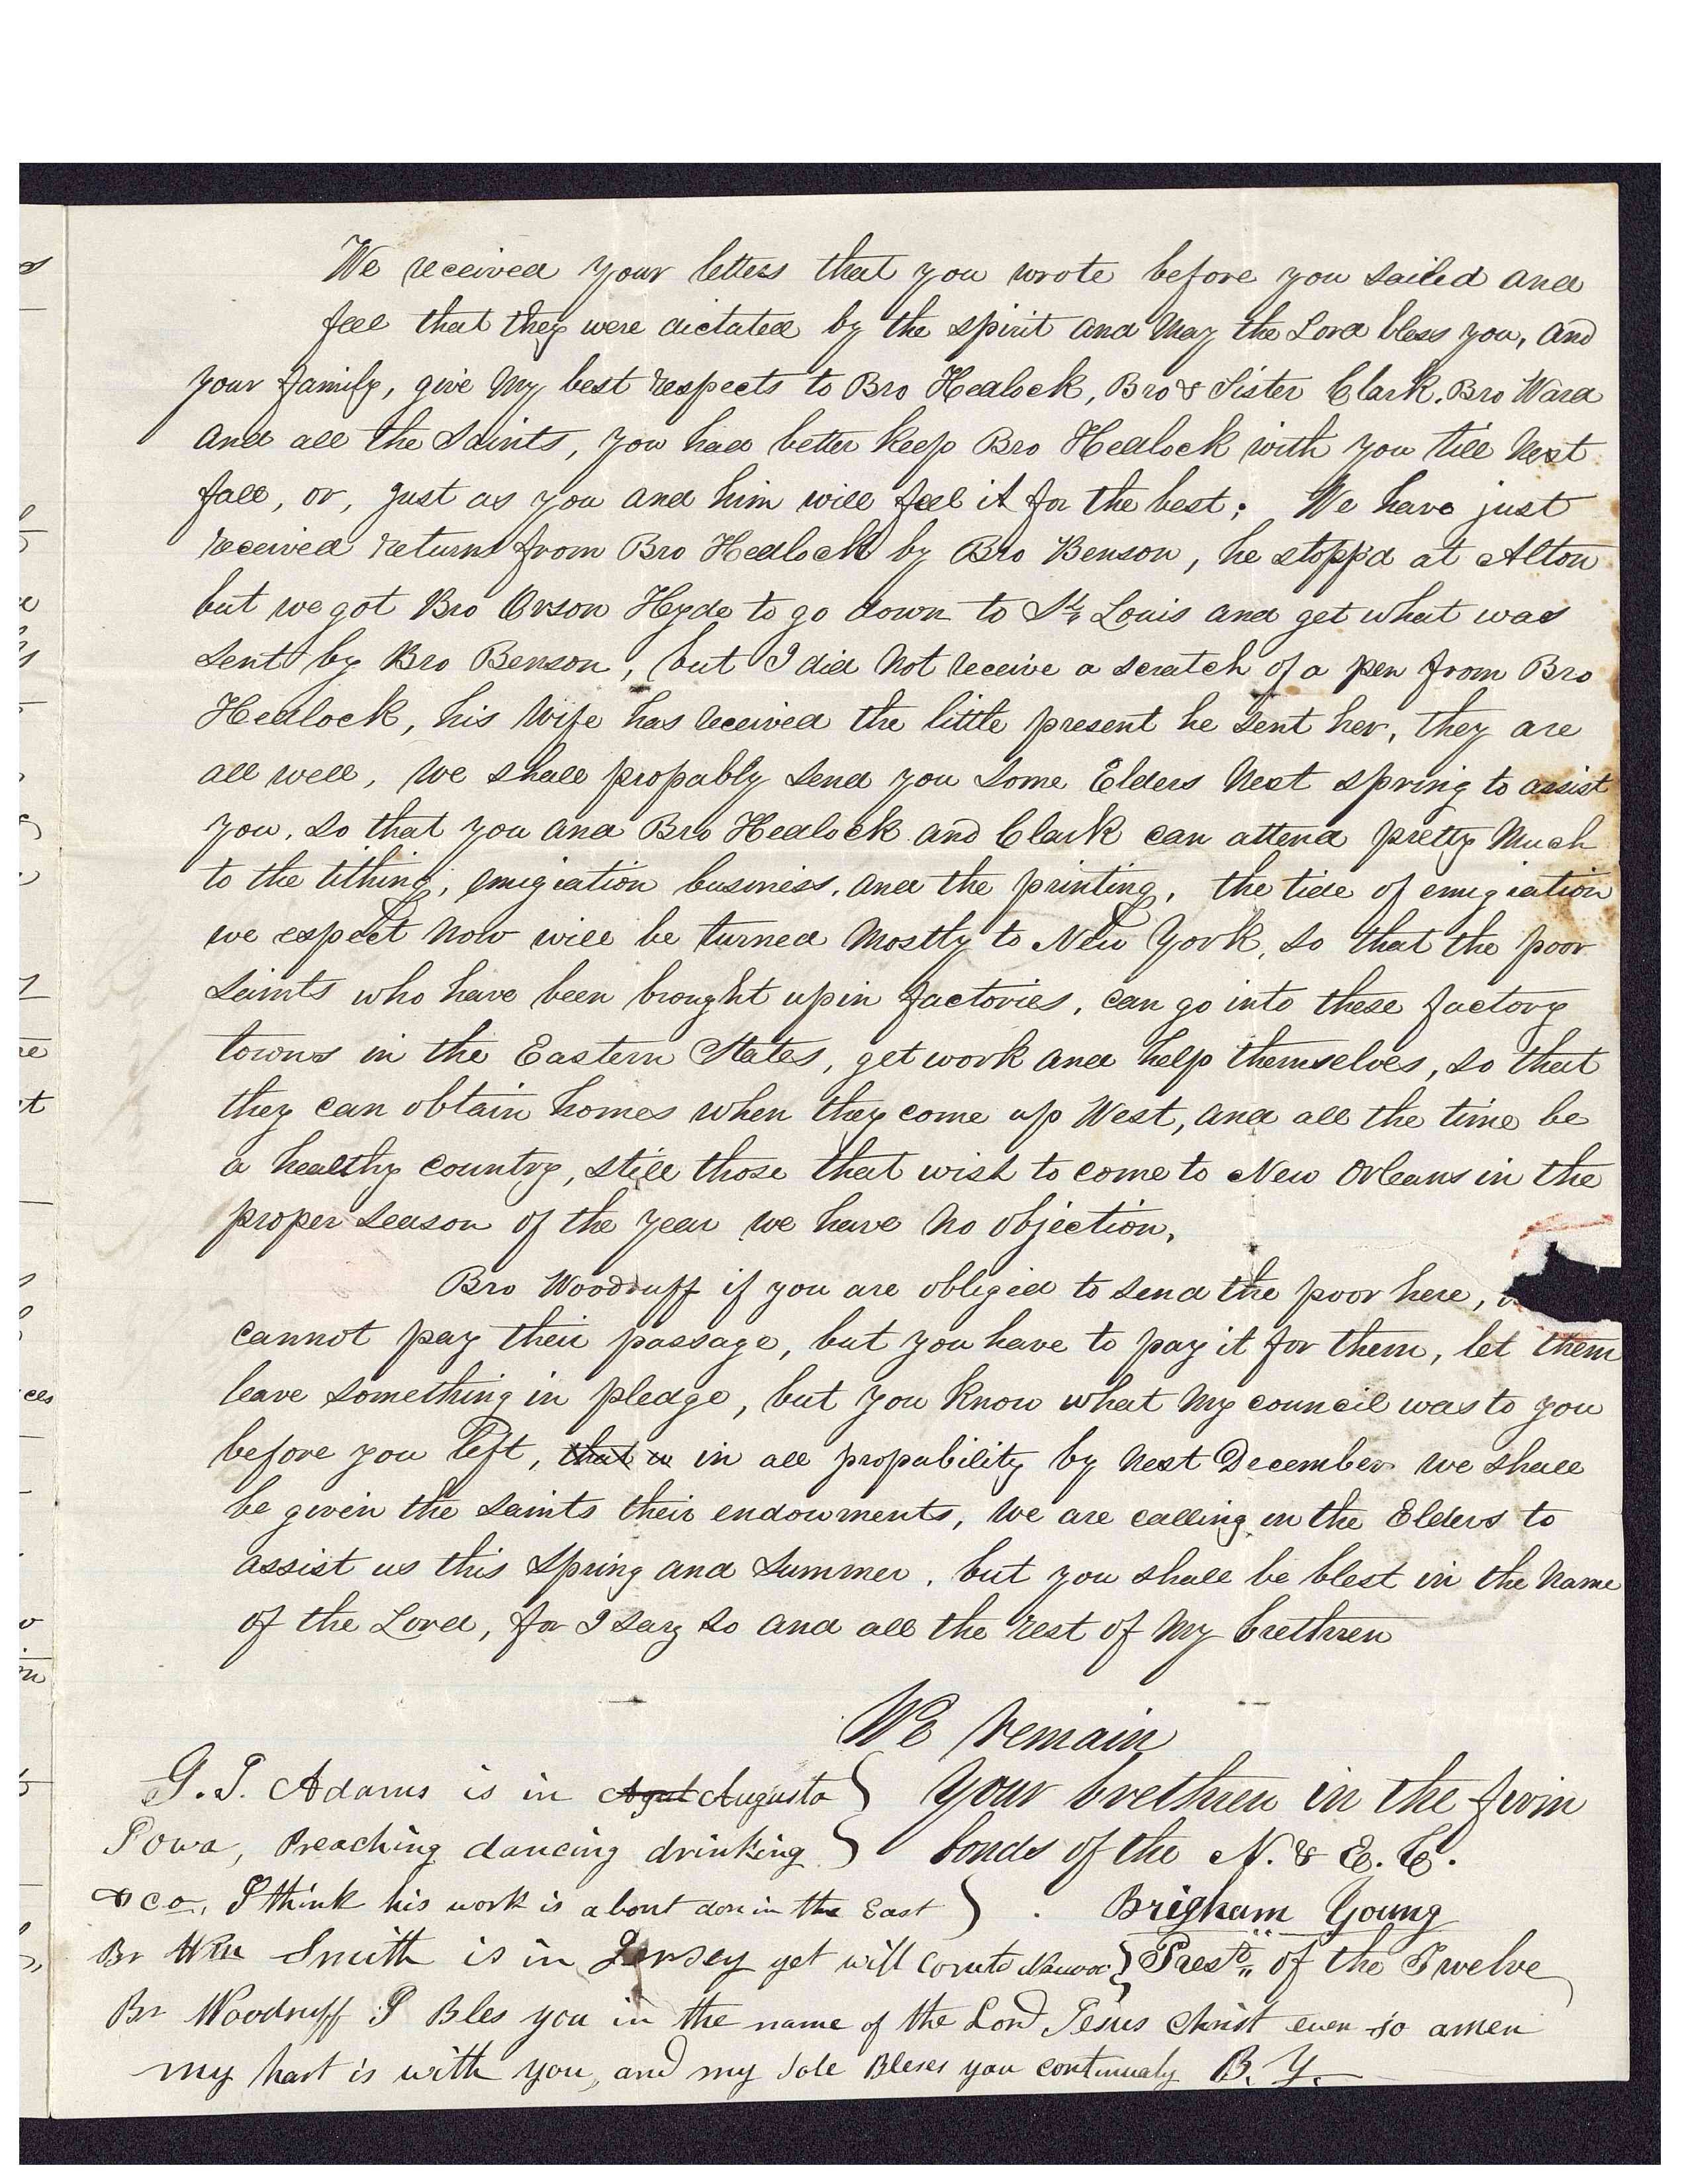 We received your letters that you wrote before you sailed and
feel that they were dictated by the spirit and May the Lord bless you, and
your family, give My best respects to Bro Hedlock, Bro & Sister Clark. Bro Ward
and all the Saints, you had better keep Bro Hedlock with you till Next
fall, or, just as you and him will feel it for the best; We have just
received returns from Bro Hedlock by Bro Benson, he stopp'd at Alton
but we got Bro Orson Hyde to go down to St Louis and get what was
sent by Bro Benson, but I did Not receive a scratch of a pen from Bro
Hedlock, his Wife has received the little present he sent her, they are
all well, we shall propably send you some Elders Next spring to assist
you, so that you and Bro Hedlock and Clark can attend pretty Much
to the tithing, emigration business, and the printing, the tide of emigration
we expect Now will be turned Mostly to New York, so that the poor
saints who have been brought up in factories, can go into these factory
towns in the Eastern States, get work and help themselves, so that
they can obtain homes when they come up West, and all the time be
a healthy country, still those that wish to come to New Orleans in the
proper season of the year we have No objection,
Bro Woodruff if you are obliged to send the poor here,
cannot pay their passage, but you have to pay it for them, let them
leave something in pledge, but you know what My council was to you
before you left, that in in all propability by Next December we shall
be given the saints their endowments, we are calling in the Elders to
assist us this spring and summer, but you shall be blest in the Name
of the Lord, for I say so and all the rest of My brethren
We remain
Your brethren in the firm
bonds of the N. & E. C.
Brigham Young
Prest of the Twelve
G. J. Adams is in Agust Augusta
Iowa, Preaching dancing drinking
& co, I think his work is about don in the East
Br Wm Smith is in Jersey yet will com to Nauvoo
Br Woodruff I Bles you in the name of the Lord Jesus Christ even so amen
my hart is with you, and my sole Bleses you continualy B. Y.